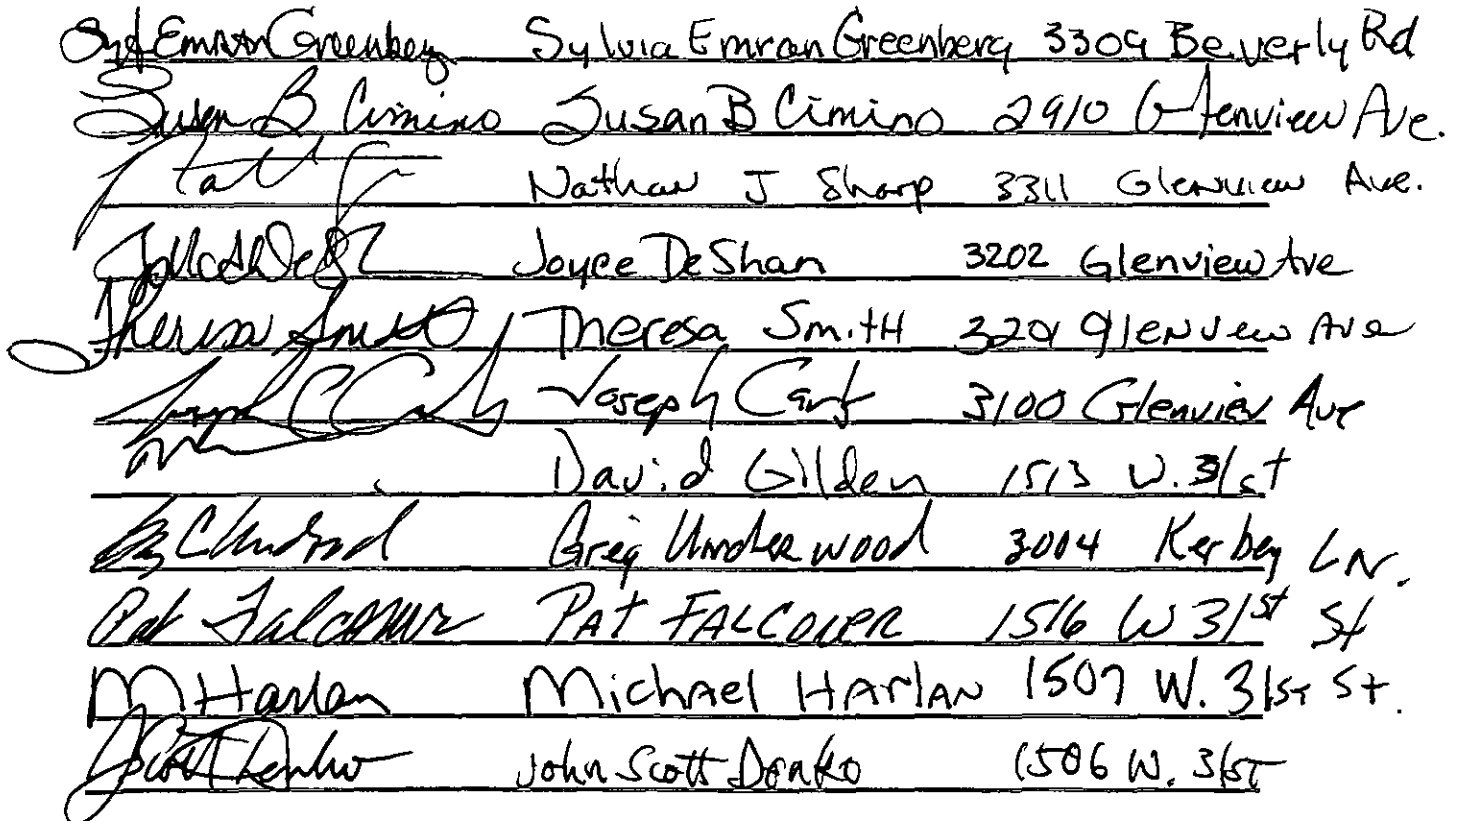 Syl Emran Greenberg Sylvia Emran Greenberg 3309 Beverly Rd
Susan B. Cimino Susan B Cimino 2910 Glenview Ave.
Nathan J Sharp 3311 Glenview Ave.
Joyce DeShan 3202 Glenview Ave
Theresa Smith Theresa Smith 3201 Glenview Ave
Joseph 3100 Glenview Ave
David Gilden 1513 W. 31st
Greg Underwood 3004 Kerbey Ln.
Pat Falconer PAT FALCONER 1516 W 31st St
M Harlan Michael Harlan 1507 W. 31st St.
John Scott 1506 W. 31st